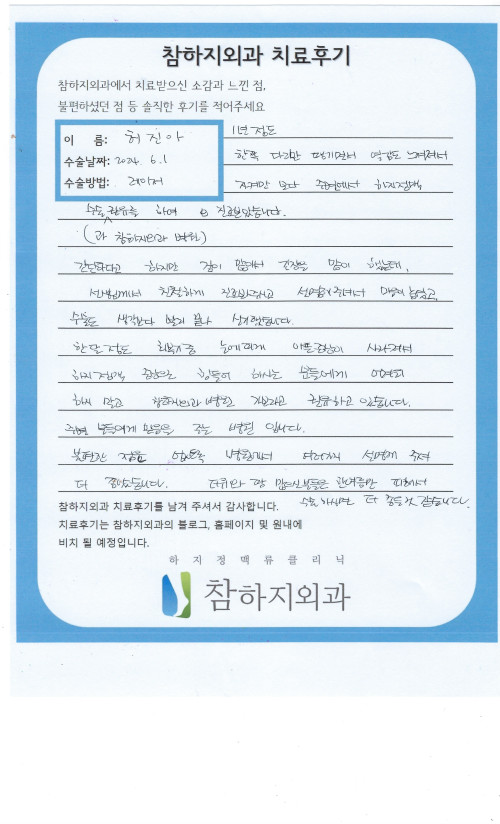 참하지외과 치료후기
참하지외과에서 치료받으신 소감과 느낀 점,
불편하셨던 점 등 솔직한 후기를 적어주세요
이 름: 허진아
수술날짜: 2024. 6. 1
수술방법: 레이저
11년 정도
한쪽 다리만 땡기면서 느껴져서
지켜만 보다 주변에서 하지정맥
수술 권유를 하여 진료받았습니다.
(과 참하지외과 병원)
간단하다고 하지만 겁이 많아서 긴장을 많이 했는데,
선생님께서 친절하게 진료봐주시고 설명해주셔서 마음이 놓였고,
수술도 생각보다 빨리 끝나 신기했습니다.
한달 정도 회복기중 눈에띄게 아픈증상이 사라져서
하지정맥 증상으로 힘들어 하시는 분들에게
하지 말고 참하지외과 병원 가보라고 권유하고 있습니다.
주변 분들에게 믿음을 주는 병원 입니다.
불편한 점은 없도록 병원에서 설명해 주셔
더 좋았습니다. 더위와 땀 많으신분들은 한여름만 피해서
수술 하시면 더 좋을것 같습니다.
참하지외과 치료후기를 남겨 주셔서 감사합니다.
치료후기는 참하지외과의 블로그, 홈페이지 및 원내에
비치 될 예정입니다.
하지정맥류클리닉
참하지외과